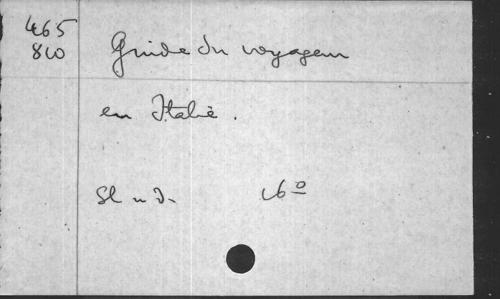 465
810
Guide du voyageur
en Italie.
Sl n d.
16º